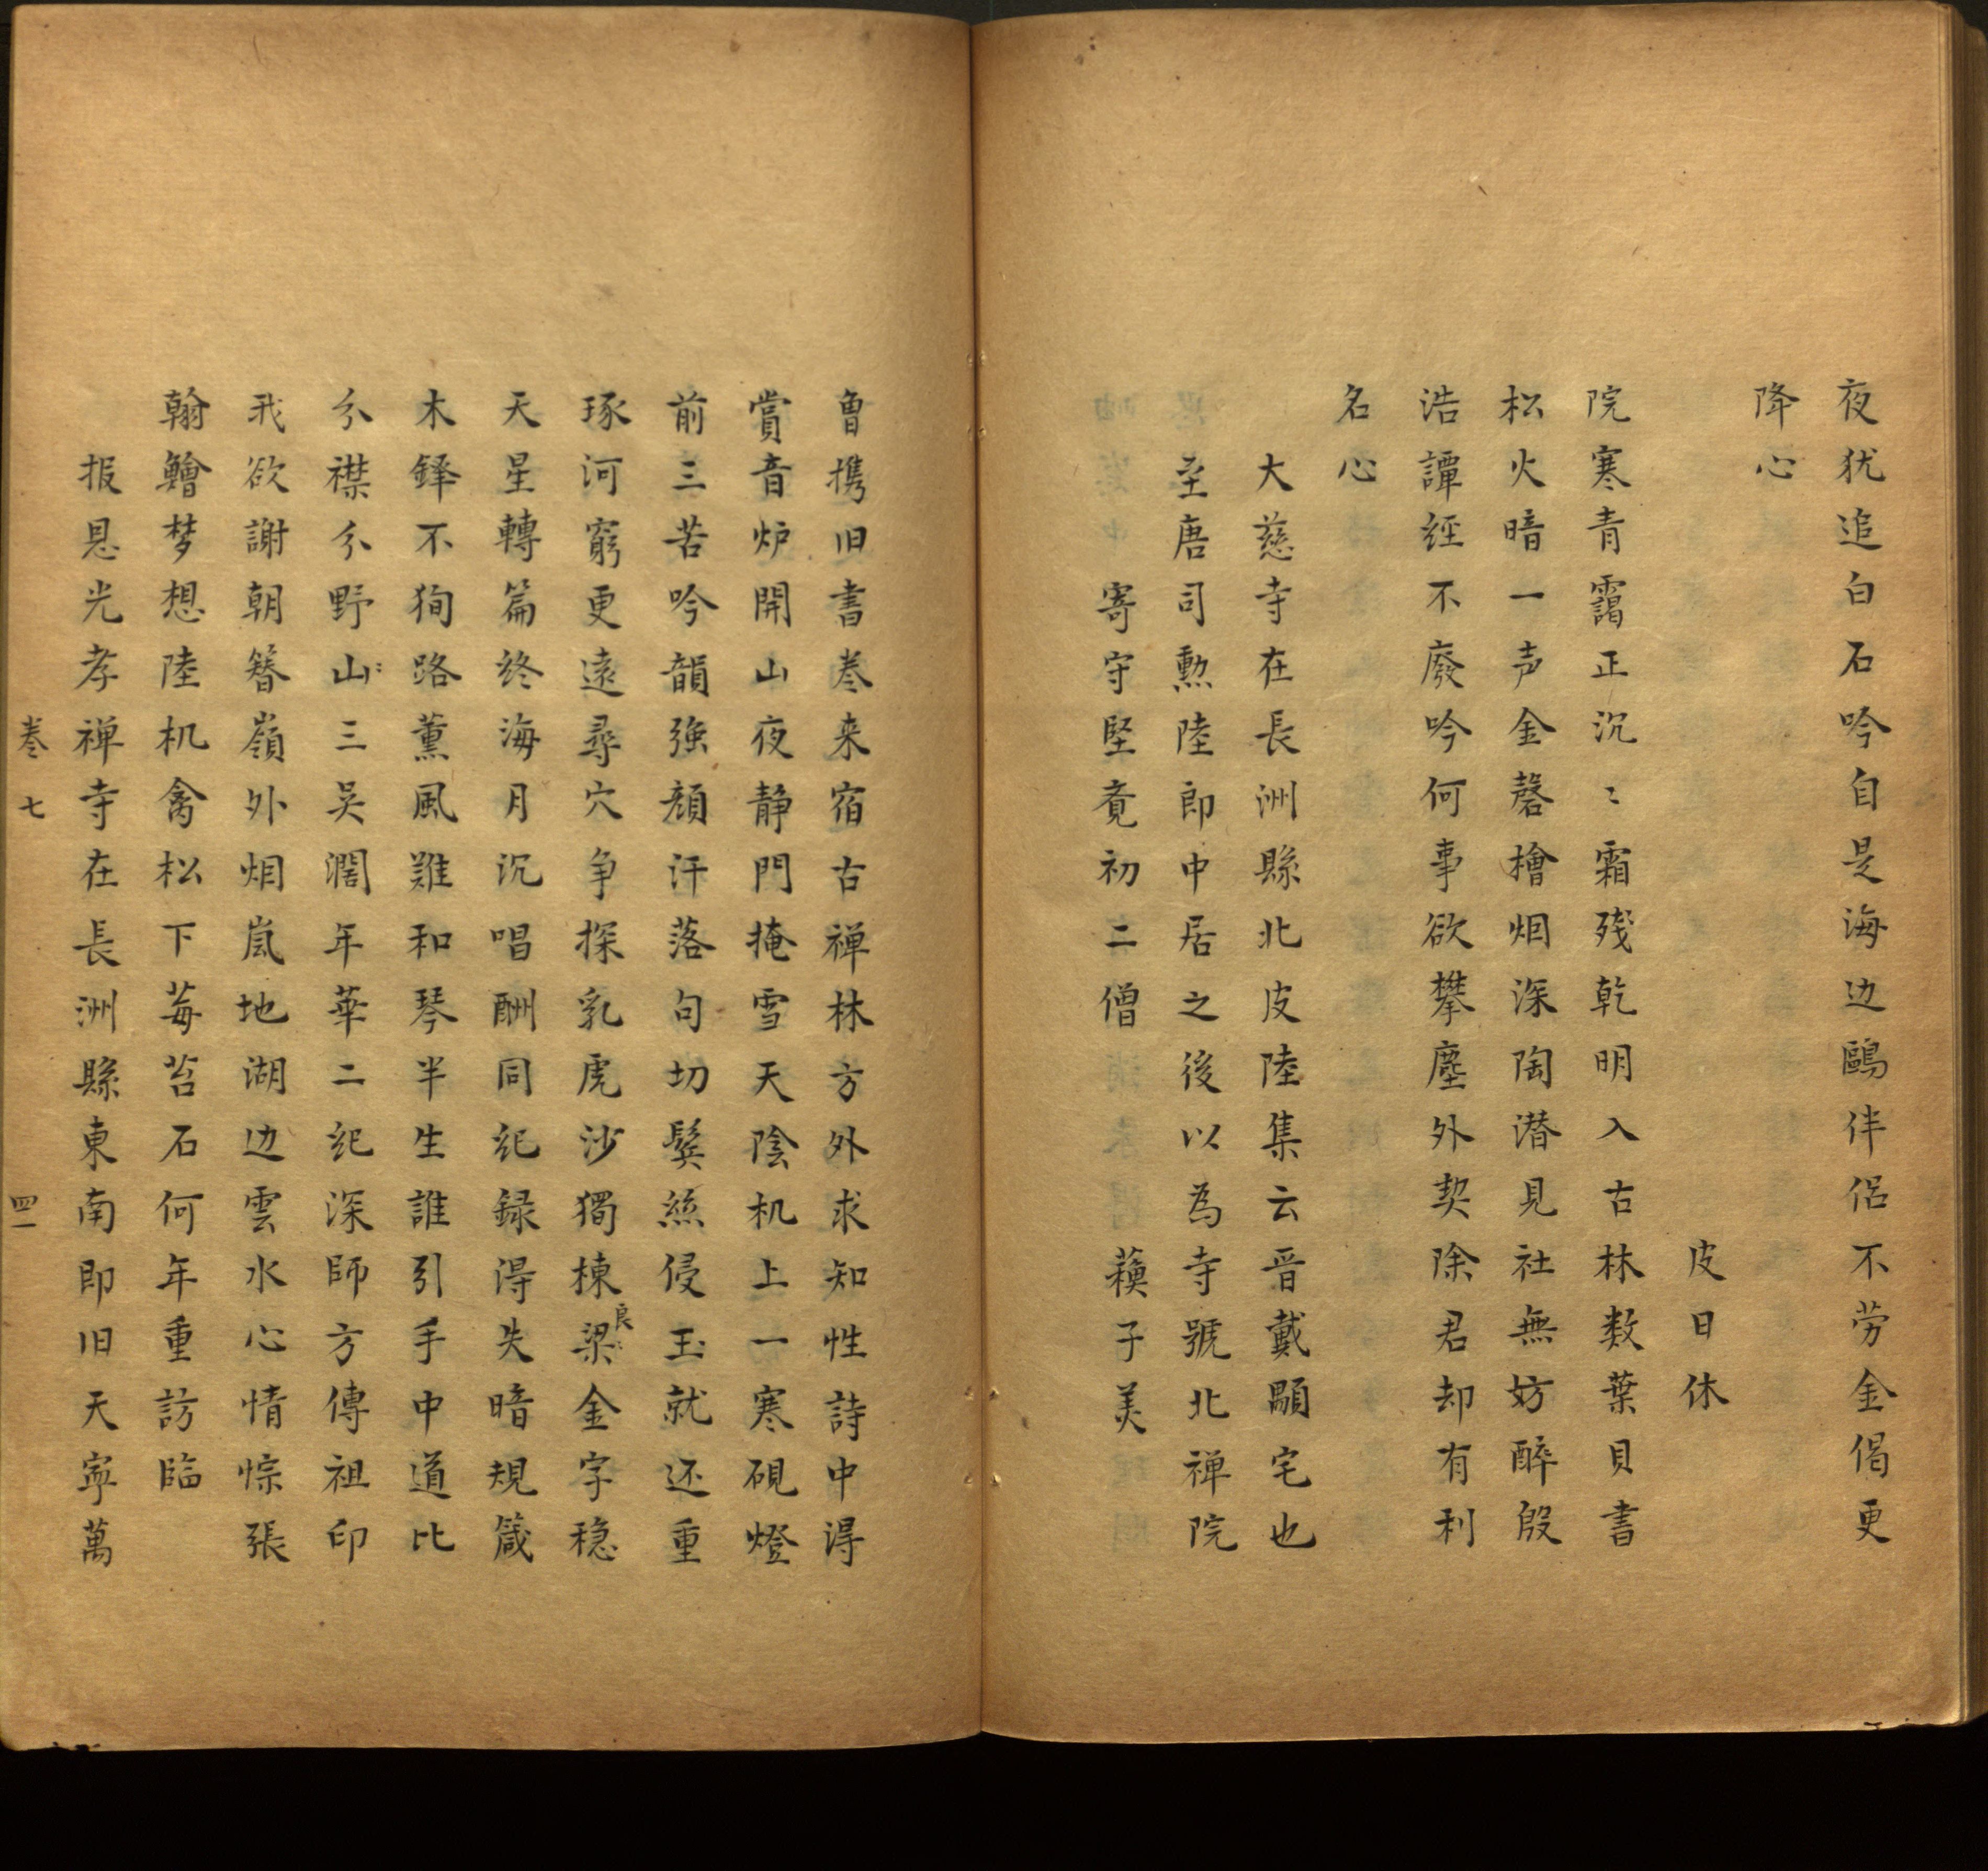 夜犹追白石吟自是海边鷗伴侣不劳金偈更
降心
皮日休
院寒青靄正沉〻霜殘乾明入古林数葉貝書
松火暗一声金磬檜烟深陶潜見社無妨醉殷
浩譚経不廢吟何事欲攀塵外契除君却有利
名心
大慈寺在長洲縣北皮陸集云晋戴顒宅也
至唐司勲陸郎中居之後以為寺號北禅院
寄守堅竟初二僧
蘓子美
魯携旧書巻来宿古禅林方外求知性詩中淂
賞音炉開山夜静門掩雪天陰机上一寒硯燈
前三苦吟韻強顔汗落句切鬓絲侵玉就还重
琢河窮更遠尋穴争探乳虎沙獨棟梁金字穏
良
天星轉篇终海月沉唱酬同紀録淂失暗規箴
木鐸不狥路薫風難和琴半生誰引手中道比
分襟分野山三吴濶年華二紀深師方傳祖印
我欲謝朝簪嶺外烟嵐地湖边雲水心情悰張
翰鱠梦想陸机禽松下莓苔石何年重訪臨
报恩光孝禅寺在長洲縣東南即旧天寧萬
巻七
四一